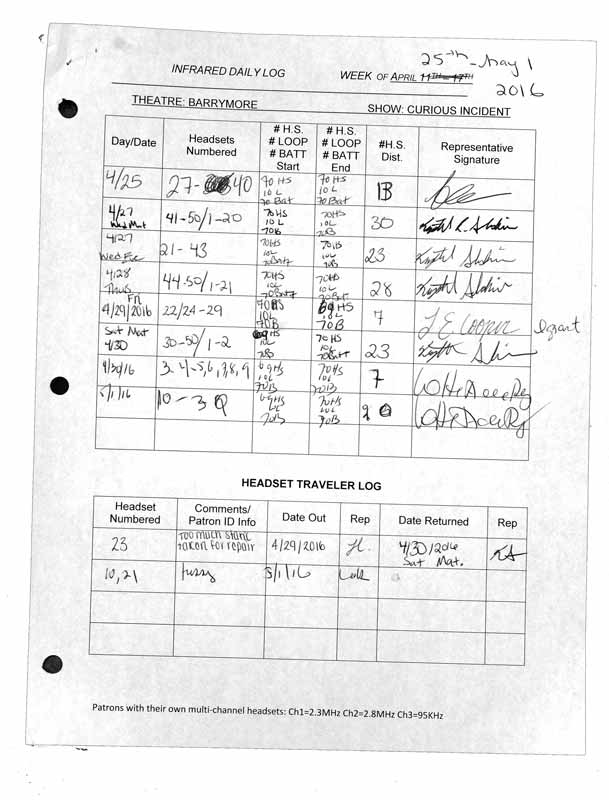 25th - May 1
INFRARED DAILY LOG WEEK OF APRIL 11TH - 17TH
2016
THEATRE: BARRYMORE SHOW: CURIOUS INCIDENT
Day/Date Headsets Numbered # H.S. # LOOP # BATT Start # H.S. # LOOP # BATT End #H.S. Dist. Representative Signature
4/25 27- 40 70 HS 10 L 70 Bat 70 HS 10 L 70 Bat 13
4/27 Wed Mat 41-50/1-20 70HS 10 L 70B 70HS 10 L 70B 30
4/27 Wed Eve 21-43 70HS 10L 70Batt 70HS 10L 70B 23
4/28 Thus 44-50/1-21 70HS 10L 70Batt 70HS 10L 70Bat 28
Fri 4/29/2016 22/24-29 70HS 10L 70B 69HS 10L 70B 7 J E Cooper
Sat Mat 4/30 30-50/1-2 69HS 10L 70B 70HS 10L 70Batt 23
4/30/16 3, 4-5, 6, 7, 8, 9 69HS 10L 70B 70HS 10L 70B 7
5/1/16 10-30 69HS 70B 70HS 10L 70B 20
HEADSET TRAVELER LOG
Headset Numbered Comments/ Patron ID Info Date Out Rep Date Returned Rep
23 too much static taken for repair 4/29/2016 JC. 4/30/2016 Sat Mat. KA
10, 21 fuzzy 5/1/16
Patrons with their own multi-channel headsets: Ch1=2.3MHz Ch2=2.8MHz Ch3=95KHz